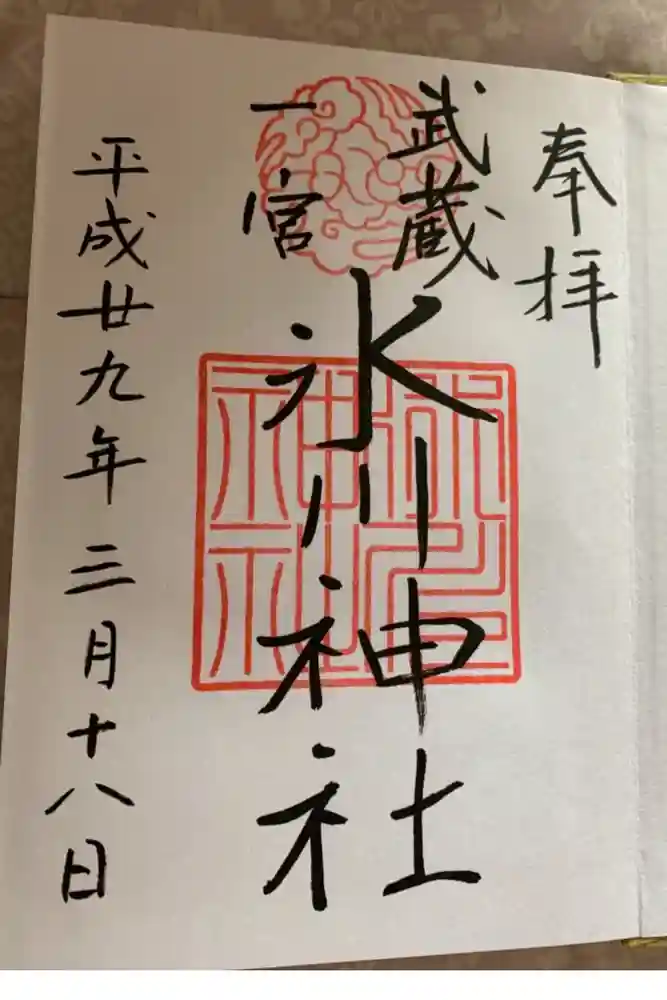 奉拝
武蔵
一宮
氷川神社
平成廿九年三月十八日
氷川
神社